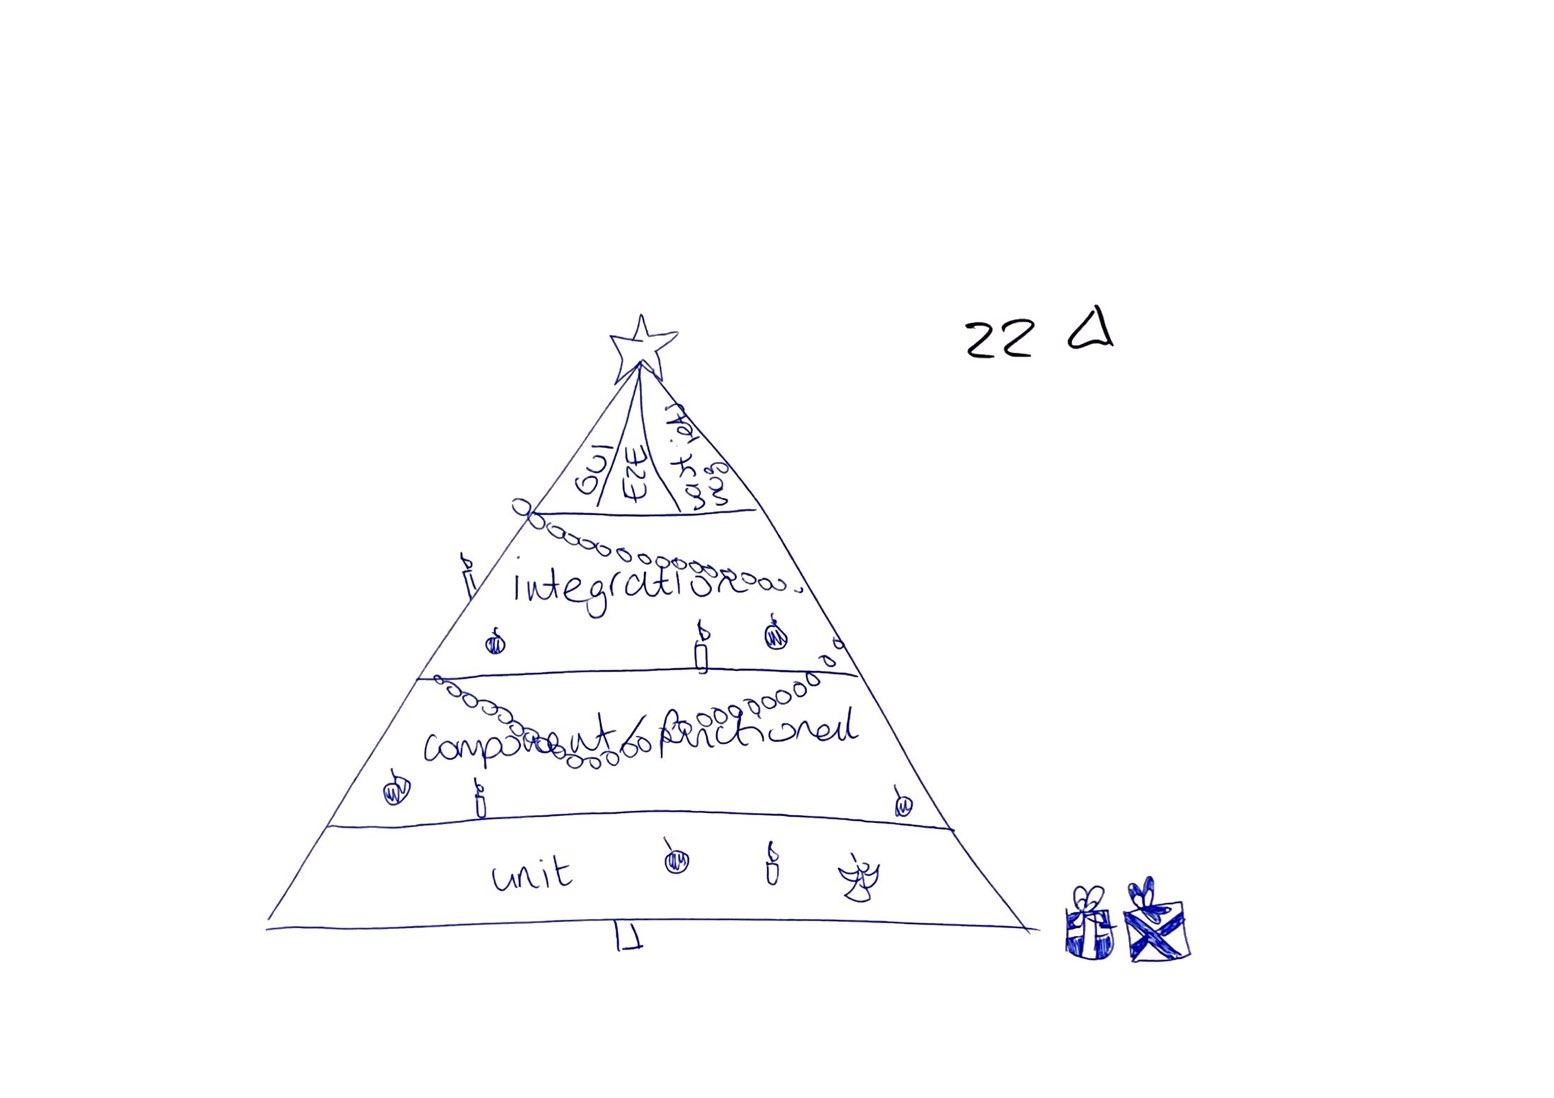 22
GUI
E2E
integration
component/functional
unit